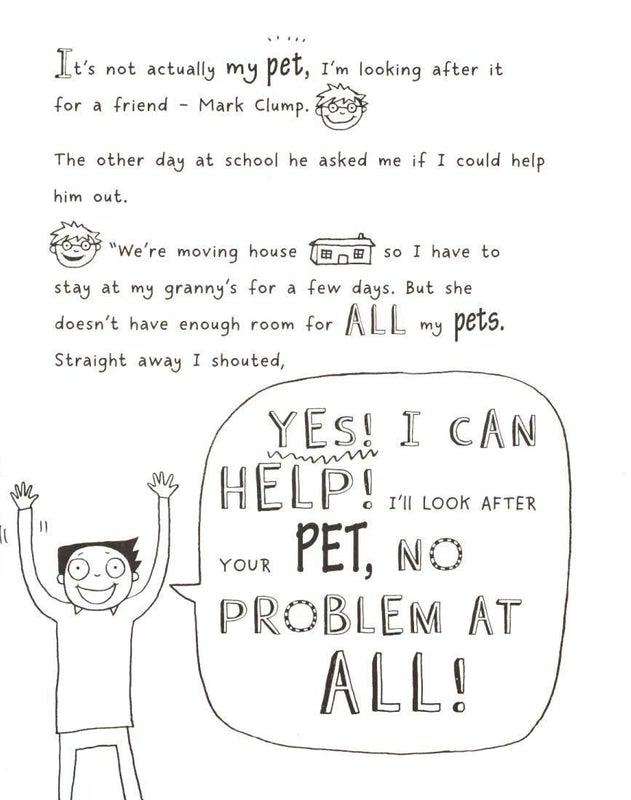 It's not actually my pet, I'm looking after it
for a friend - Mark Clump.
The other day at school he asked me if I could help
him out.
"We're moving house so I have to
stay at my granny's for a few days. But she
doesn't have enough room for ALL my pets.
Straight away I shouted,
YES! I CAN
HELP! I'll LOOK AFTER
YOUR PET, NO
PROBLEM AT
ALL!